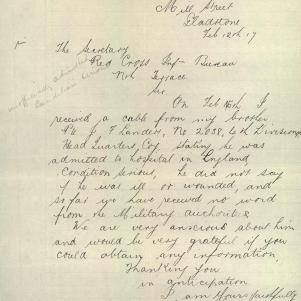 Mill Street
Gladstone
Feb 18th 17
The Secretary
Red Cross Inf Bureau
Nth Terrace
Sir
On Feb 16th I
received a cable from my brother
Pte J. F Landers, No 2038, 4th Divisional
Head Quarters, Coy stating he was
admitted to hospital in England
Condition Serious, he did not say
if he was ill or wounded, and
so far we have received no word
from the Military authorities
We are very anxious about him
and would be very grateful if you
could obtain any information
Thanking you
in anticipation
I am Yours faithfully